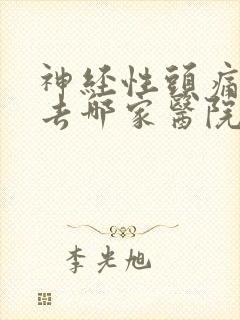 神経性頭痛
去哪家醫院
李光旭